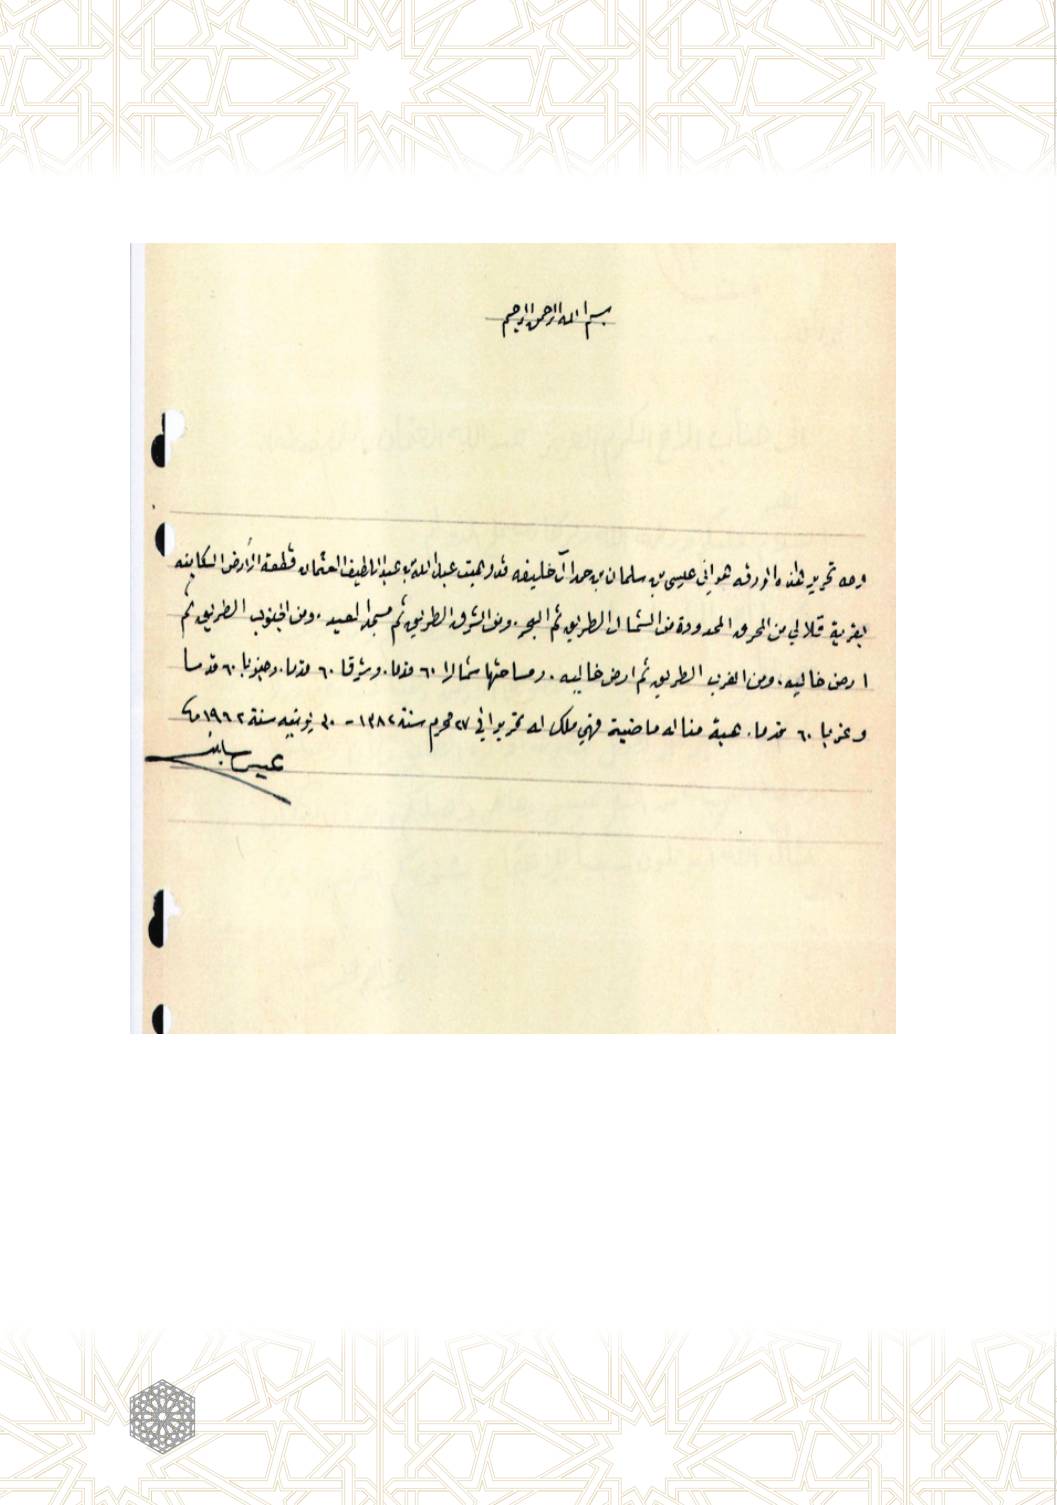 بسم الله الرحمن الرحيم
وجه تحرير هذه الورقه هو اني عيسى بن سلمان بن حمد آل خليفه قد وهبت عبد الله بن عبد اللطيف العثمان قطعة الأرض الكاينه
بقرية قلالي من المحرق المحدودة من الشمال الطريق ثم البحر. ومن الشرق الطريق ثم مسجد العيد. ومن الجنوب الطريق ثم
ارض خاليه. ومن الغرب الطريق ثم ارض خاليه. ومساحتها شمالا ٦٠ قدما. وشرقا ٦٠ قدما. وجنوبا ٦٠ قدما
وغربا ٦٠ قدما. هبة مناله ماضية فهي ملك له تحريرا في ٢٧ محرم سنة ١٣٨٢ - ٣٠ يونيه سنة ١٩٦٢
عيسى سلمان